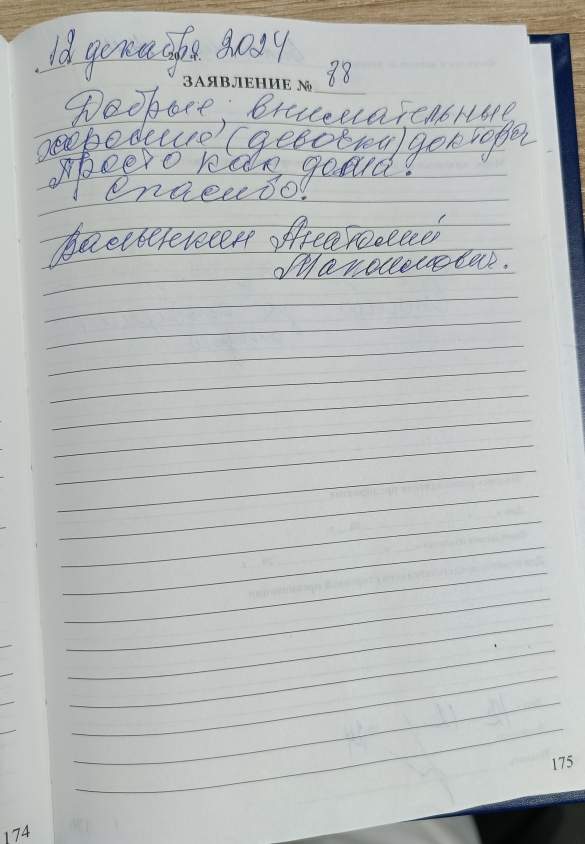 12 декабря 2024
ЗАЯВЛЕНИЕ № 88
Добрые, внимательные
хорошие, (девочки) доктора
Просто как дома.
Спасибо.
Анатолий
175
174